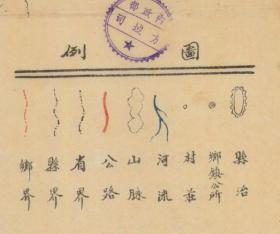 圖例
縣治
鄉鎮公所
村莊
河流
山脈
公路
省界
縣界
鄉界